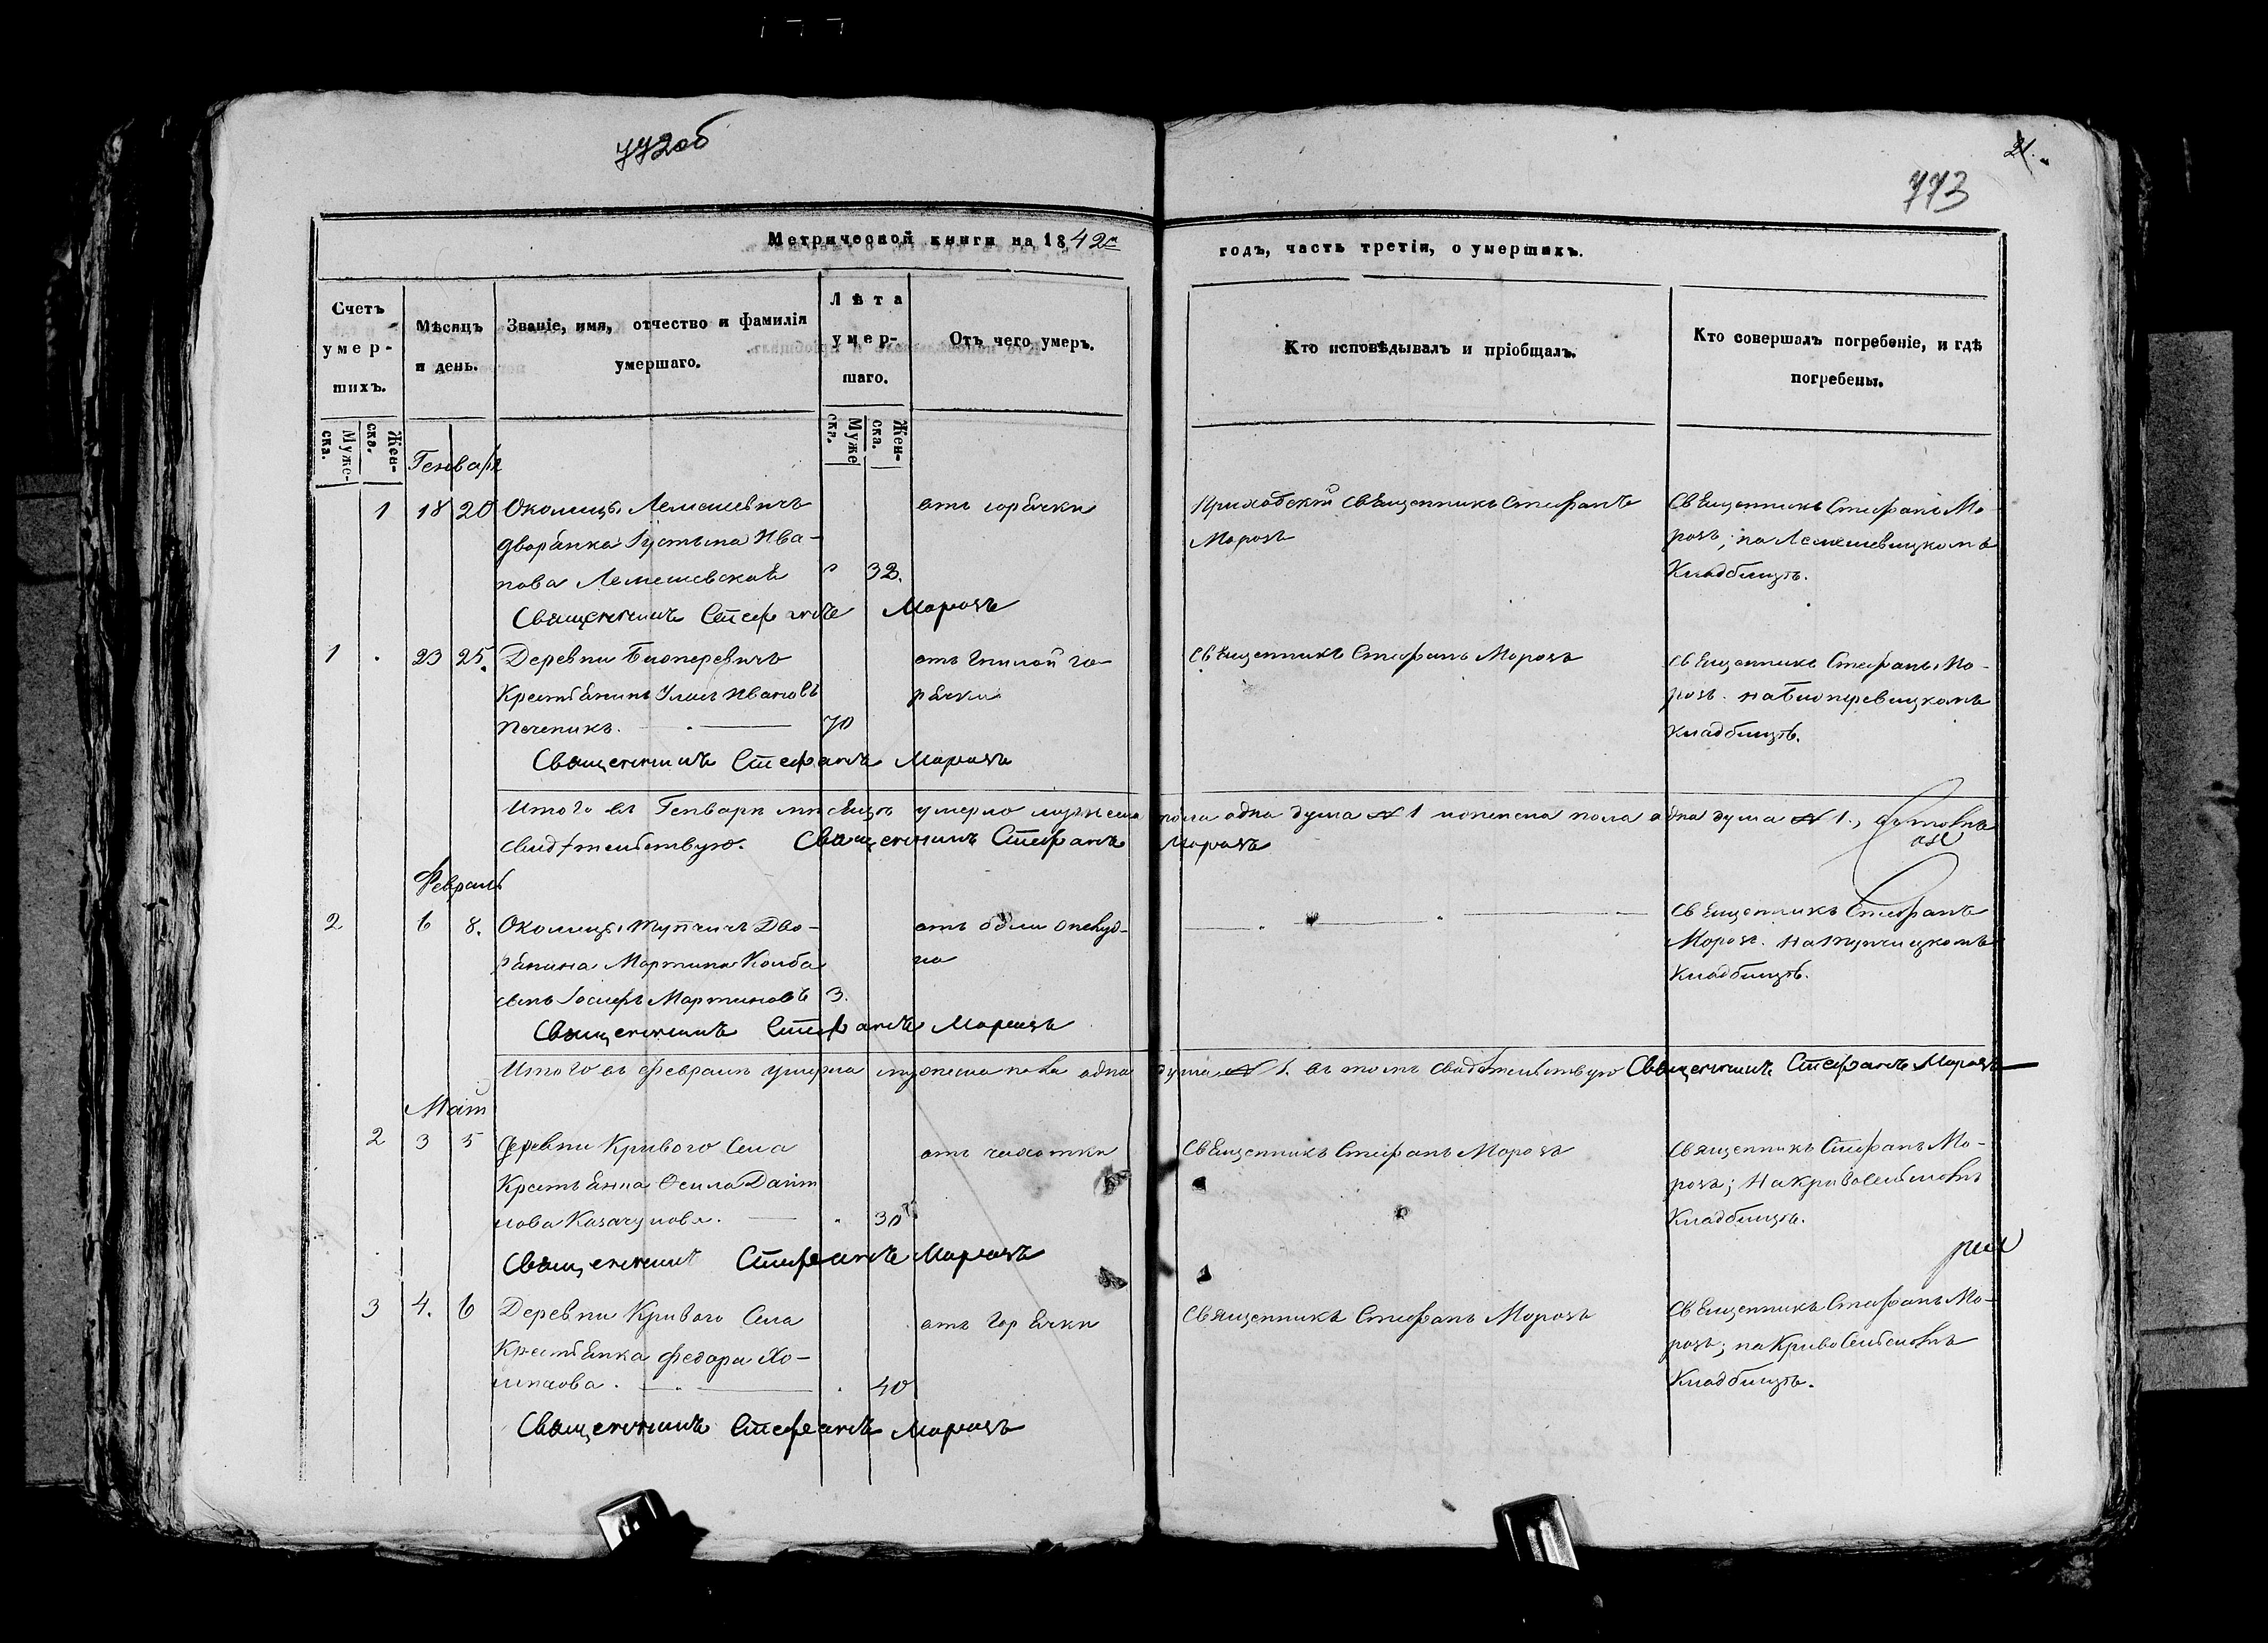 772об
21.
773
Метрической книги на 1842й
годъ, часть третія, о умершихъ.
Счетъ умер-шихъ.
Мѣсяцъ и день.
Званіе, имя, отчество и фамилія умершаго.
Лѣта умер-шаго.
Отъ чего умеръ.
Кто исповѣдывалъ и пріобщалъ.
Кто совершалъ погребеніе, и гдѣ погребены.
Муже-ска.
Жен-ска.
Муже ска.
Жен-ска.
Генварь
1 18 20 Околицы Лемешевичъ
дворянка Іустина Ива-
нова Лемешевская 32.
отъ горячки
Приходскій священникъ Стефанъ
Морозъ
Священникъ Стефанъ Мо-
розъ; на Лемешевицкомъ
Кладбищѣ.
Священникъ Стефанъ Морозъ
1 23 25. Деревни Біоперевичъ
Крестьянинъ Иванов
Печеникъ. 70
отъ гнилой го-
рячки
Священникъ Стефанъ Морозъ
Священникъ Стефанъ Мо-
розъ. на Біоперевицкомъ
кладбищѣ.
Священникъ Стефанъ Морозъ
Итого въ Генварѣ мѣсяцѣ умерло мужеска пола одна душа № 1 и женска пола одна душа № 1.,
свидѣтельствую. Священникъ Стефанъ Морозъ
Февраль
2 6 8. Околицы Тупчичъ Дво-
рянина Мартина Колба
сынъ Іосифъ Мартиновъ 3.
отъ
Священникъ Стефанъ
Морозъ. на Тупчицкомъ
Кладбищѣ.
Священникъ Стефанъ Морозъ
Итого въ февралѣ умерла мужеска пола одна душа № 1. въ томъ свидѣтельствую Священникъ Стефанъ Морозъ
Маій
2 3 5 Деревни Кривого Села
Крестьянка
нова 30
отъ чахотки
Священникъ Стефанъ Морозъ
Священникъ Стефанъ Мо-
розъ; на Кривосельскомъ
Кладбищѣ.
Священникъ Стефанъ Морозъ
3 4. 6 Деревни Кривого Села
Крестьянка Федора Хо-
40
отъ горячки
Священникъ Стефанъ Морозъ
Священникъ Стефанъ Мо-
розъ; на Кривосельскомъ
Кладбищѣ.
Священникъ Стефанъ Морозъ